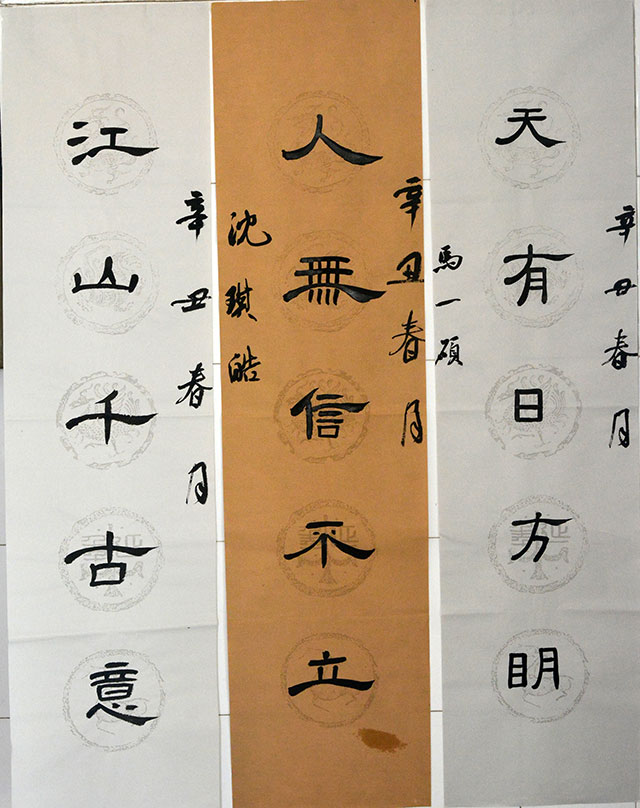 辛丑春月
天有日方眀
馬一碩
辛丑春月
人無信不立
沈琪皓
辛丑春月
江山千古意